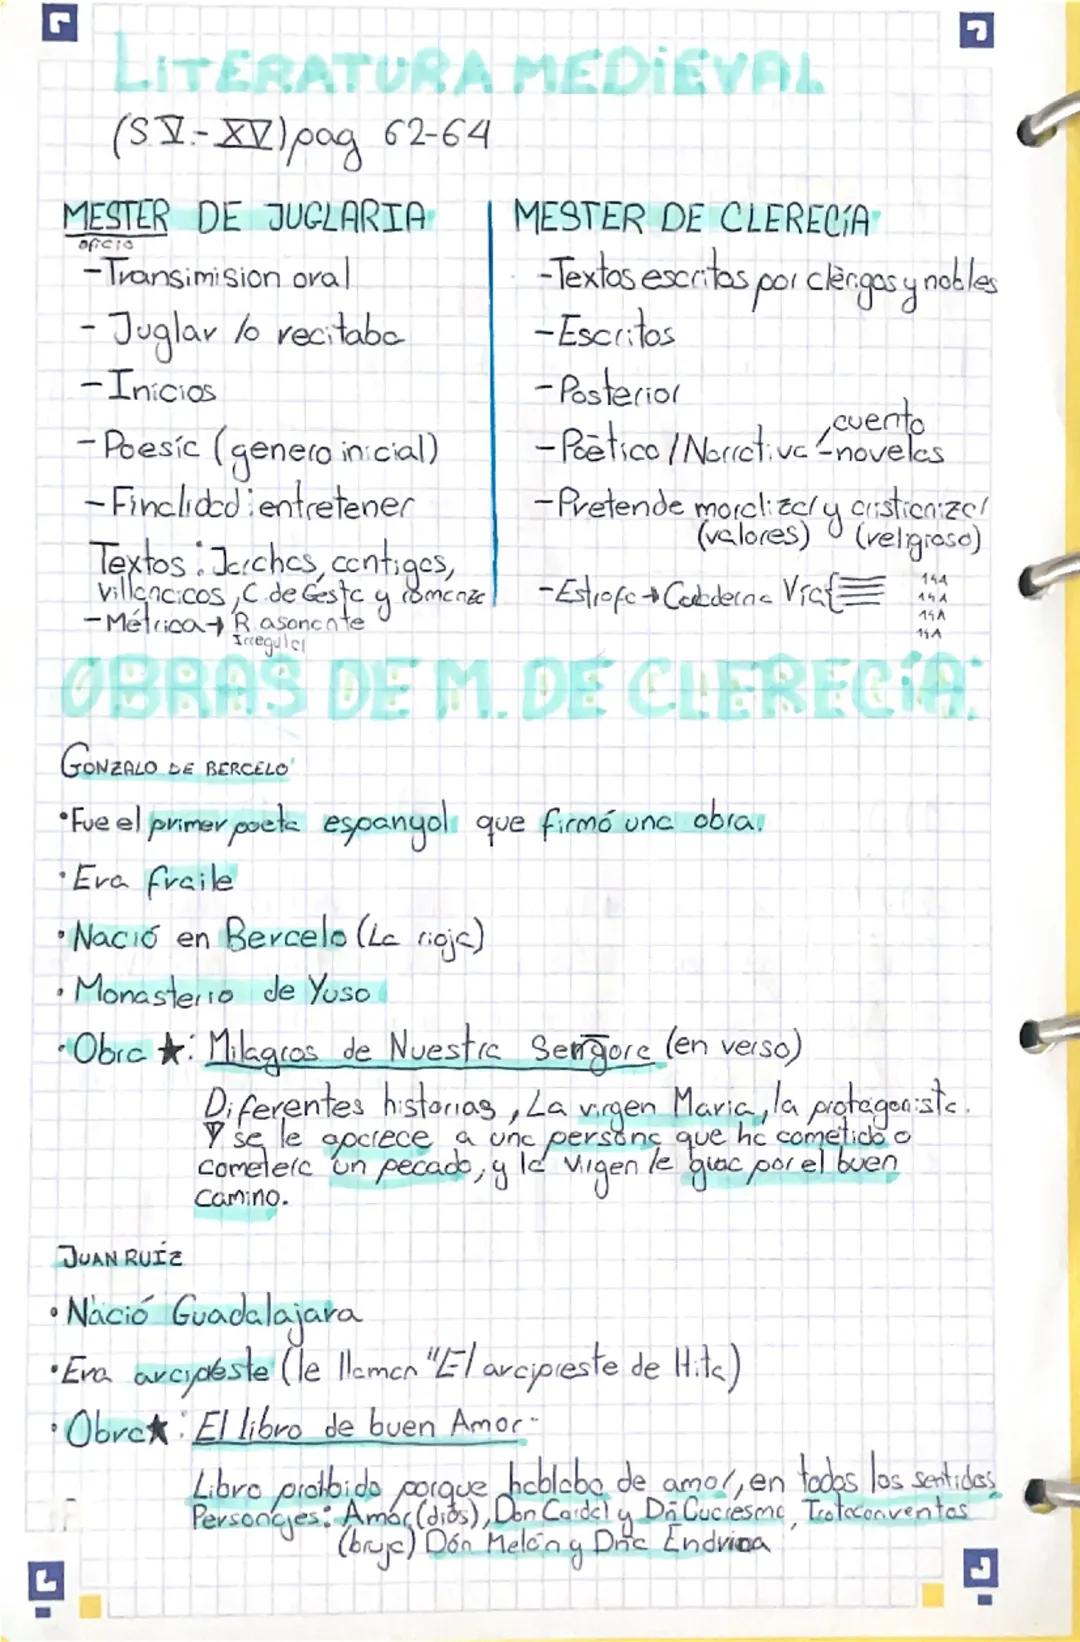 LITERATURA MEDIEVAL
(S.V.-XV) pag 62-64
MESTER DE JUGLARIA
oficio
-Transimision oral
- Juglar lo recitaba
-Inicios
-Poesía (genero inicial)
-Finalidad: entretener
Textos: Jarchas, cantigas,
villancicos, C. de Gesta y romance
-Métrica→ R. asonante
Irregular
MESTER DE CLERECÍA
-Textos escritos por clèrigos y nobles
-Escritos
-Posterior
-Poético / Narrativa
cuento
-novelas
-Pretende moralizar y cristianizar
(valores) (religioso)
-Estrofa→ Cuaderna Vía
14A
14A
14A
14A
OBRAS DE M. DE CLERECÍA:
GONZALO DE BERCELO
•Fue el primer poeta espanyol que firmó una obra.
•Era fraile
•Nació en Bercelo (La rioja)
•Monasterio de Yuso
•Obra ★: Milagros de Nuestra Senyora (en verso)
Diferentes historias, La virgen Maria, la protagonista.
Y se le aparece a una persona que ha cometido o
cometera un pecado, y la Virgen le guia por el buen
camino.
JUAN RUÍZ
•Nació Guadalajara
•Era arcipreste (le llaman "El arcipreste de Hita)
•Obra★: El libro de buen Amor
Libro prohibido porque hablaba de amor, en todos los sentidos
Personajes: Amor (dios), Don Cardal y Dña Cuaresma, Trotaconventos
(bruja) Dón Melón y Dña Endrina